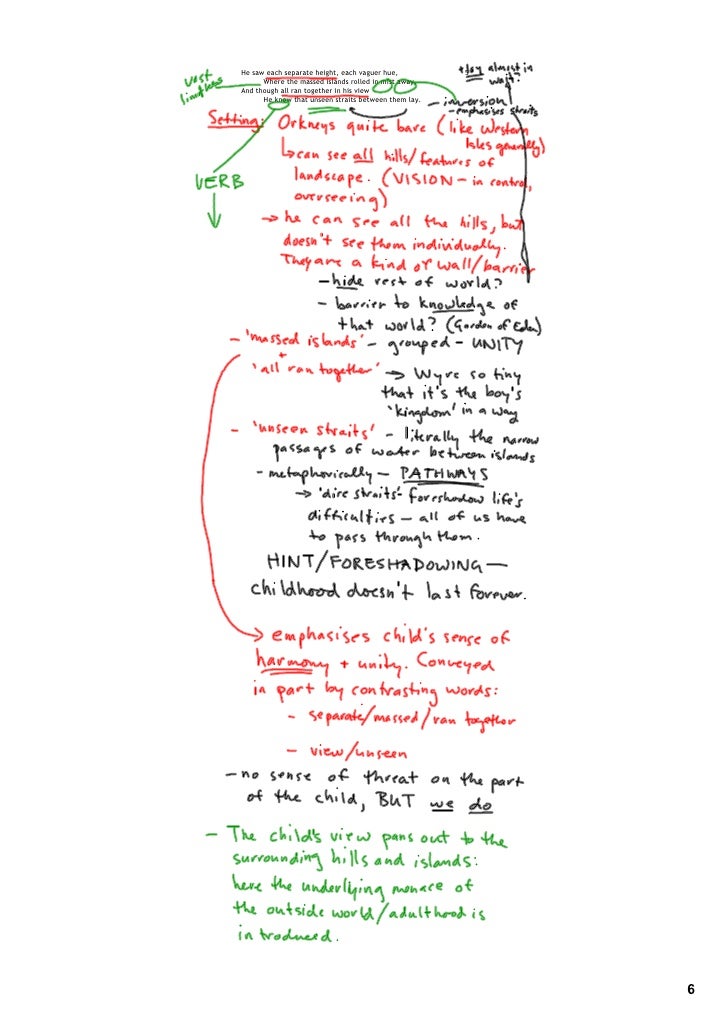 He saw each separate height, each vaguer hue,
Where the massed islands rolled in mist away,
And though all ran together in his view
He knew that unseen straits between them lay.
vast
limitless
they almost in
wait?
- inversion
- emphasises straits
Setting: Orkneys quite bare (like Western
Isles generally)
↳ can see all hills/features of
landscape. (VISION - in control,
overseeing)
VERB
→ he can see all the hills, but
doesn't see them individually.
They are a kind of wall/barrier
- hide rest of world?
- barrier to knowledge of
that world? (Garden of Eden)
- 'massed islands' - grouped - UNITY
+
'all ran together' → Wyre so tiny
that it's the boy's
'kingdom' in a way
- 'unseen straits' - literally the narrow
passages of water between islands
- metaphorically - PATHWAYS
→ 'dire straits' - foreshadow life's
difficulties - all of us have
to pass through them.
HINT/FORESHADOWING -
childhood doesn't last forever.
→ emphasises child's sense of
harmony + unity. Conveyed
in part by contrasting words:
- separate/massed/ran together
- view/unseen
- no sense of threat on the part
of the child, BUT we do
- The child's view pans out to the
surrounding hills and islands:
here the underlying menace of
the outside world/adulthood is
introduced.
6